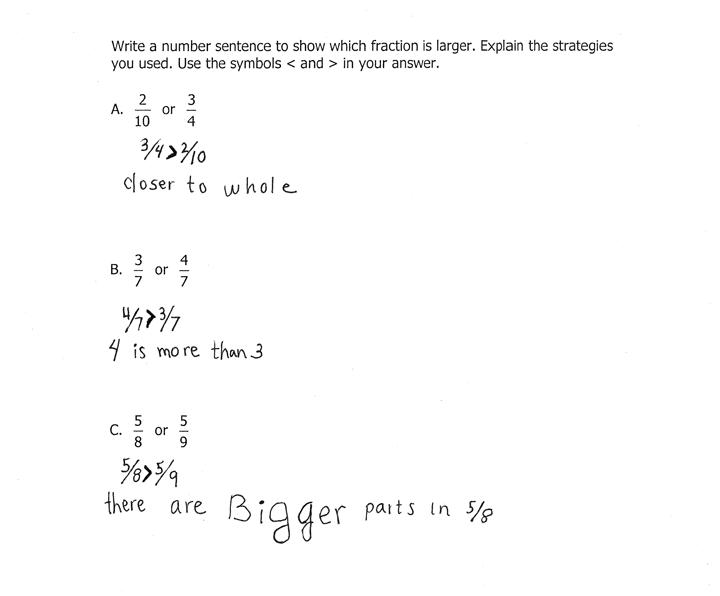 Write a number sentence to show which fraction is larger. Explain the strategies
you used. Use the symbols < and > in your answer.
A. 2/10 or 3/4
3/4 > 2/10
closer to whole
B. 3/7 or 4/7
4/7 > 3/7
4 is more than 3
C. 5/8 or 5/9
5/8 > 5/9
there are Bigger parts in 5/8